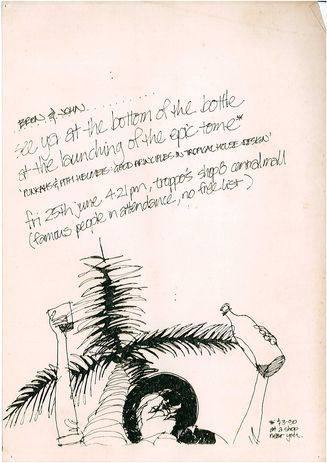 BRON & JOHN..........
see ya at the bottom of the bottle
at the launching of the epic tome*
'PUNKAHS & PITH HELMETS: GOOD PRINCIPLES IN TROPICAL HOUSE DESIGN'
fri 25th june 4.21pm, troppo's shop 8 central mall
(famous people in attendance, no free list)
* $3.90
at a shop
near you..